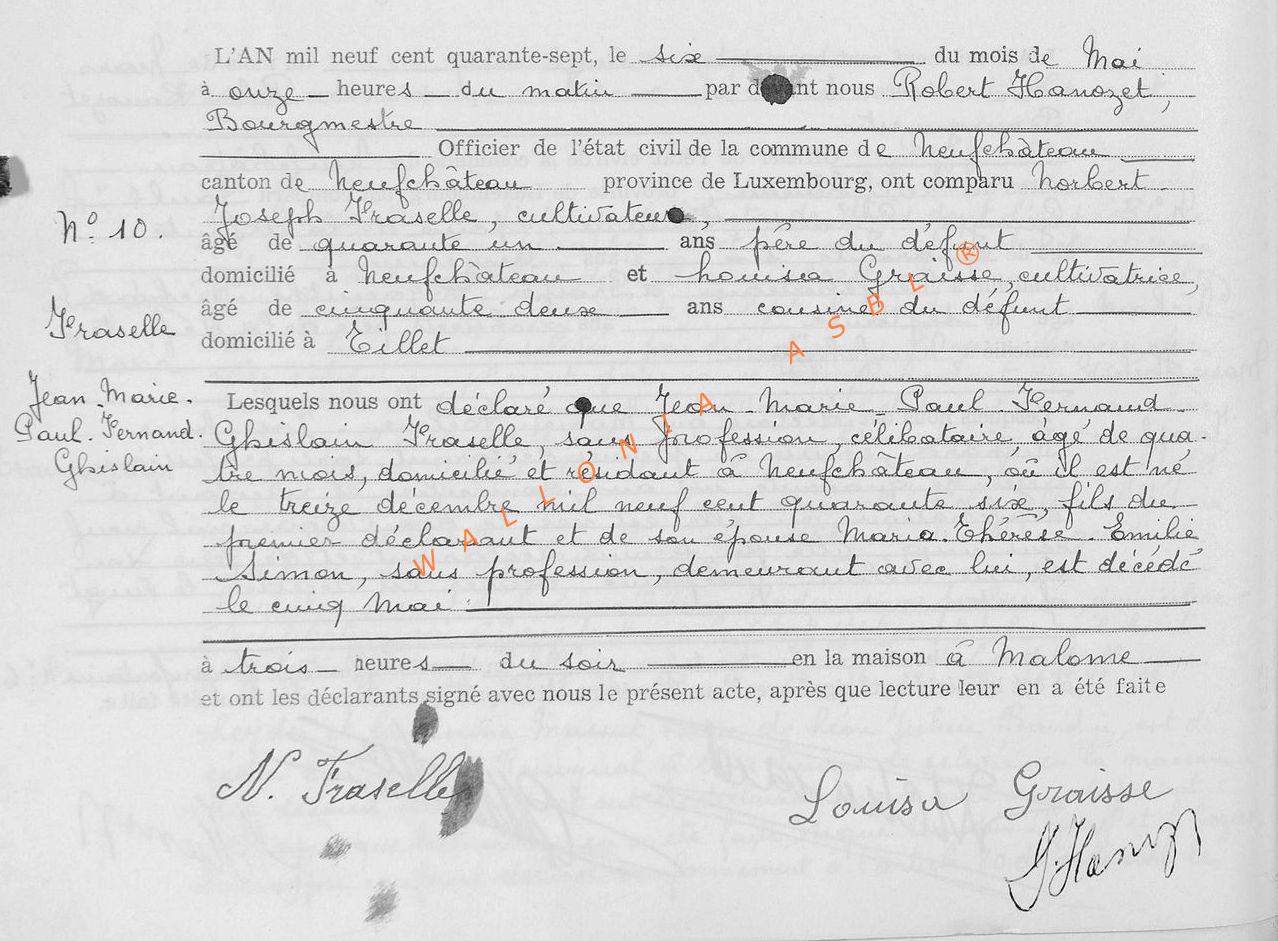 L'AN mil neuf cent quarante-sept, le six du mois de Mai
à onze heures du matin par devant nous Robert Hanozet,
Bourgmestre
Officier de l'état civil de la commune de Neufchâteau
canton de Neufchâteau province de Luxembourg, ont comparu Norbert
N° 10.
Joseph Fraselle, cultivateur,
âgé de quarante un ans père du défunt
domicilié à Neufchâteau et Louisa Graisse, cultivatrice,
âgé de cinquante deux ans cousine du défunt
Fraselle
domicilié à Tillet
Jean-Marie-
Paul-Fernand-
Ghislain
Lesquels nous ont déclaré que Jean-Marie-Paul-Fernand-
Ghislain Fraselle, sans profession, célibataire âgé de qua-
tre mois, domicilié et résidant à Neufchâteau, où il est né
le treize décembre mil neuf cent quarante six, fils du
premier déclarant et de son épouse Maria-Thérèse-Emilie
Simon, sans profession, demeurant avec lui, est décédé
le cinq Mai
à trois heures du soir en la maison à Malome
et ont les déclarants signé avec nous le présent acte, après que lecture leur en a été faite
N. Fraselle
Louisa Graisse
WALLONIA ASBL ®